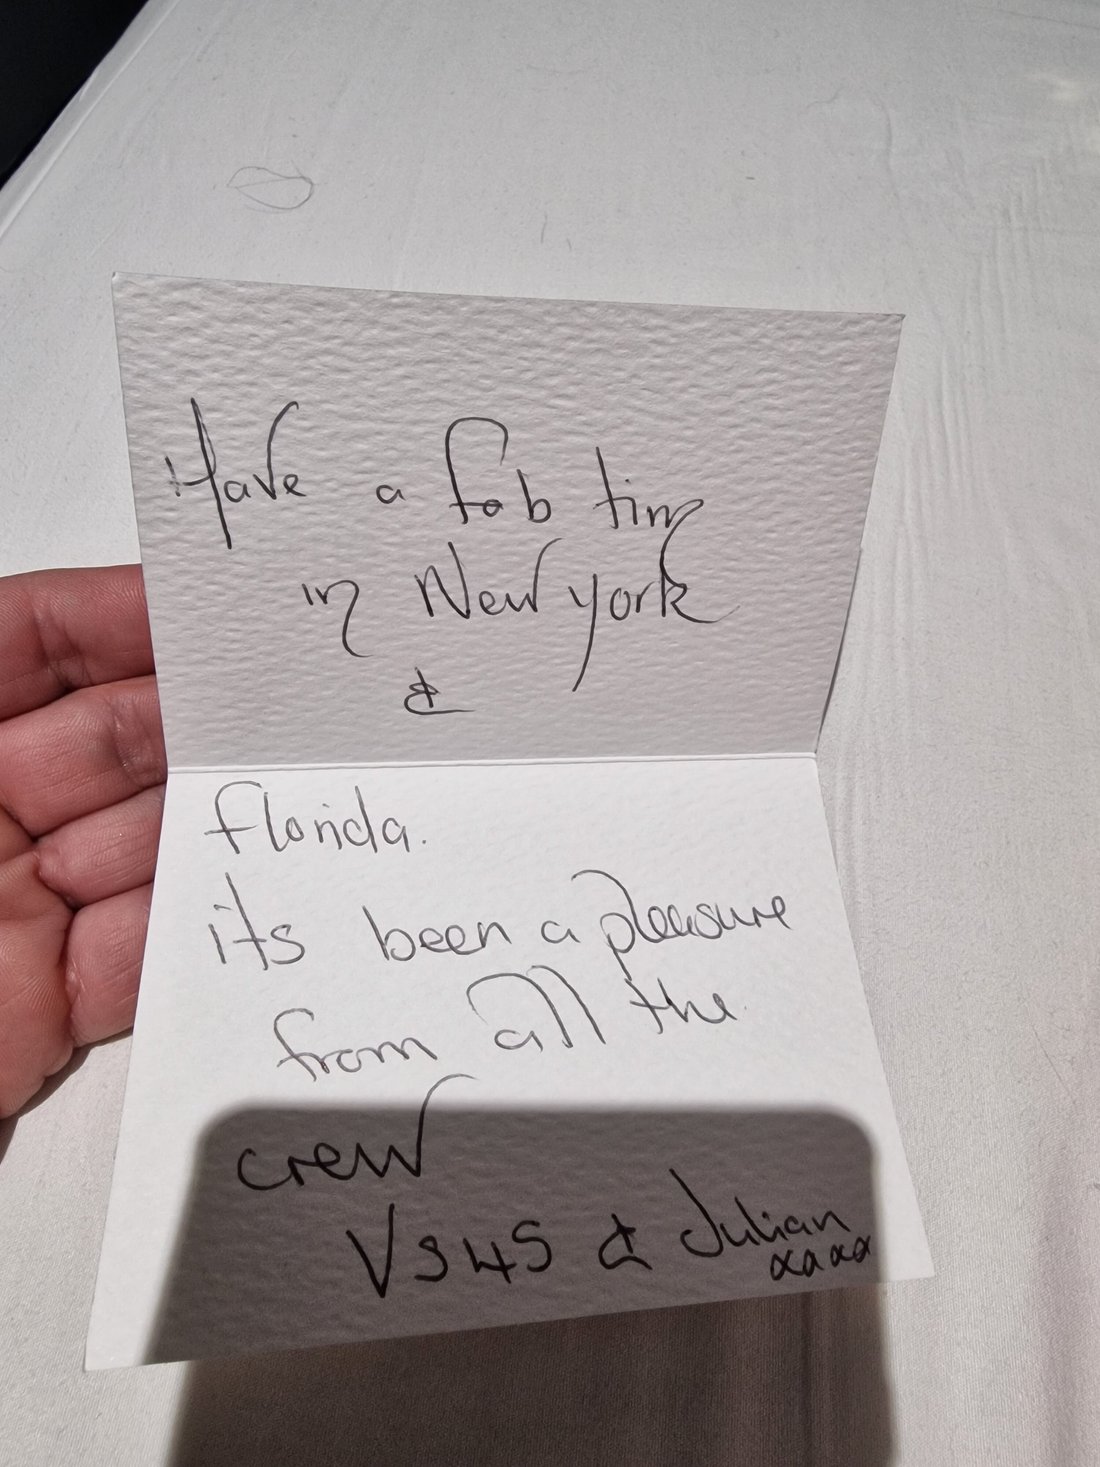 Have a fab time
in New york
&
florida.
its been a pleasure
from all the
crew
VS45 & Julian
xxxx